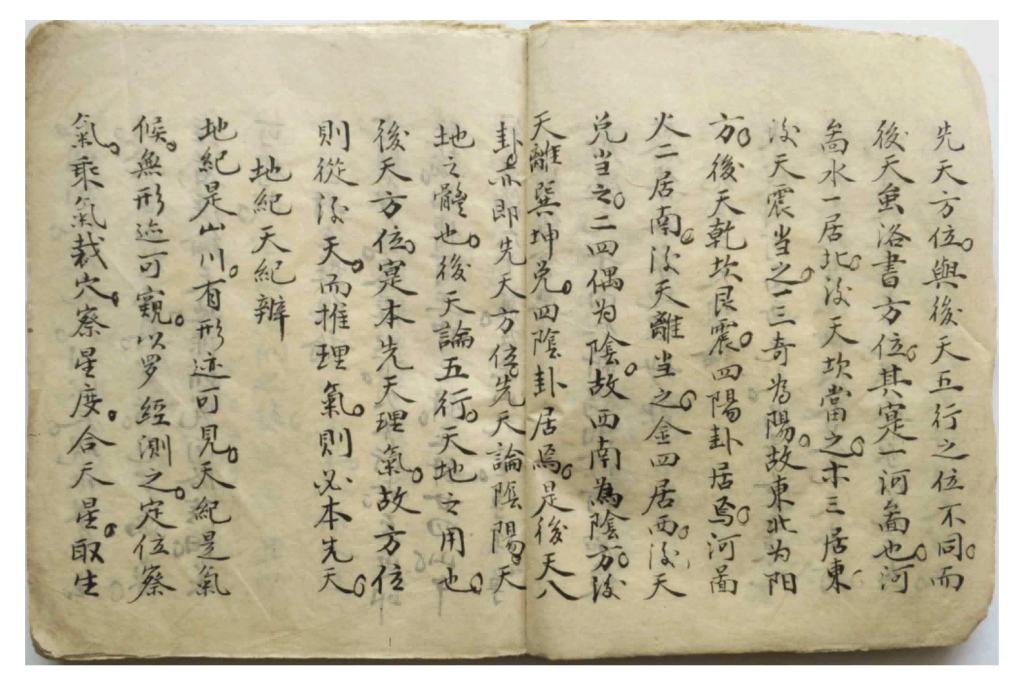 先天方位。與後天五行之位不同。而
後天虽洛書方位。其寔一河啚也。河
啚水一居北。没天坎當之。木三居東
没天震当之。一三奇為陽。故東北为阳
方。後天乾坎艮震。四陽卦居焉。河啚
火二居南。没天離当之。金四居西。没天
兑当之。二四偶为陰。故西南為陰方。没
天離巽坤兑。四陰卦居焉。是後天八
卦亦即先天方位。先天論陰陽。天
地之體也。後天論五行。天地之用也。
後天方位。寔本先天理氣。故方位
則從没天。而推理氣。則必本先天。
地紀天紀辨
地紀是山川。有形迹可見。天紀是氣
候。無形迹可窺。以罗經測之。定位察
氣。乘氣裁穴。察星度。合天星。取生